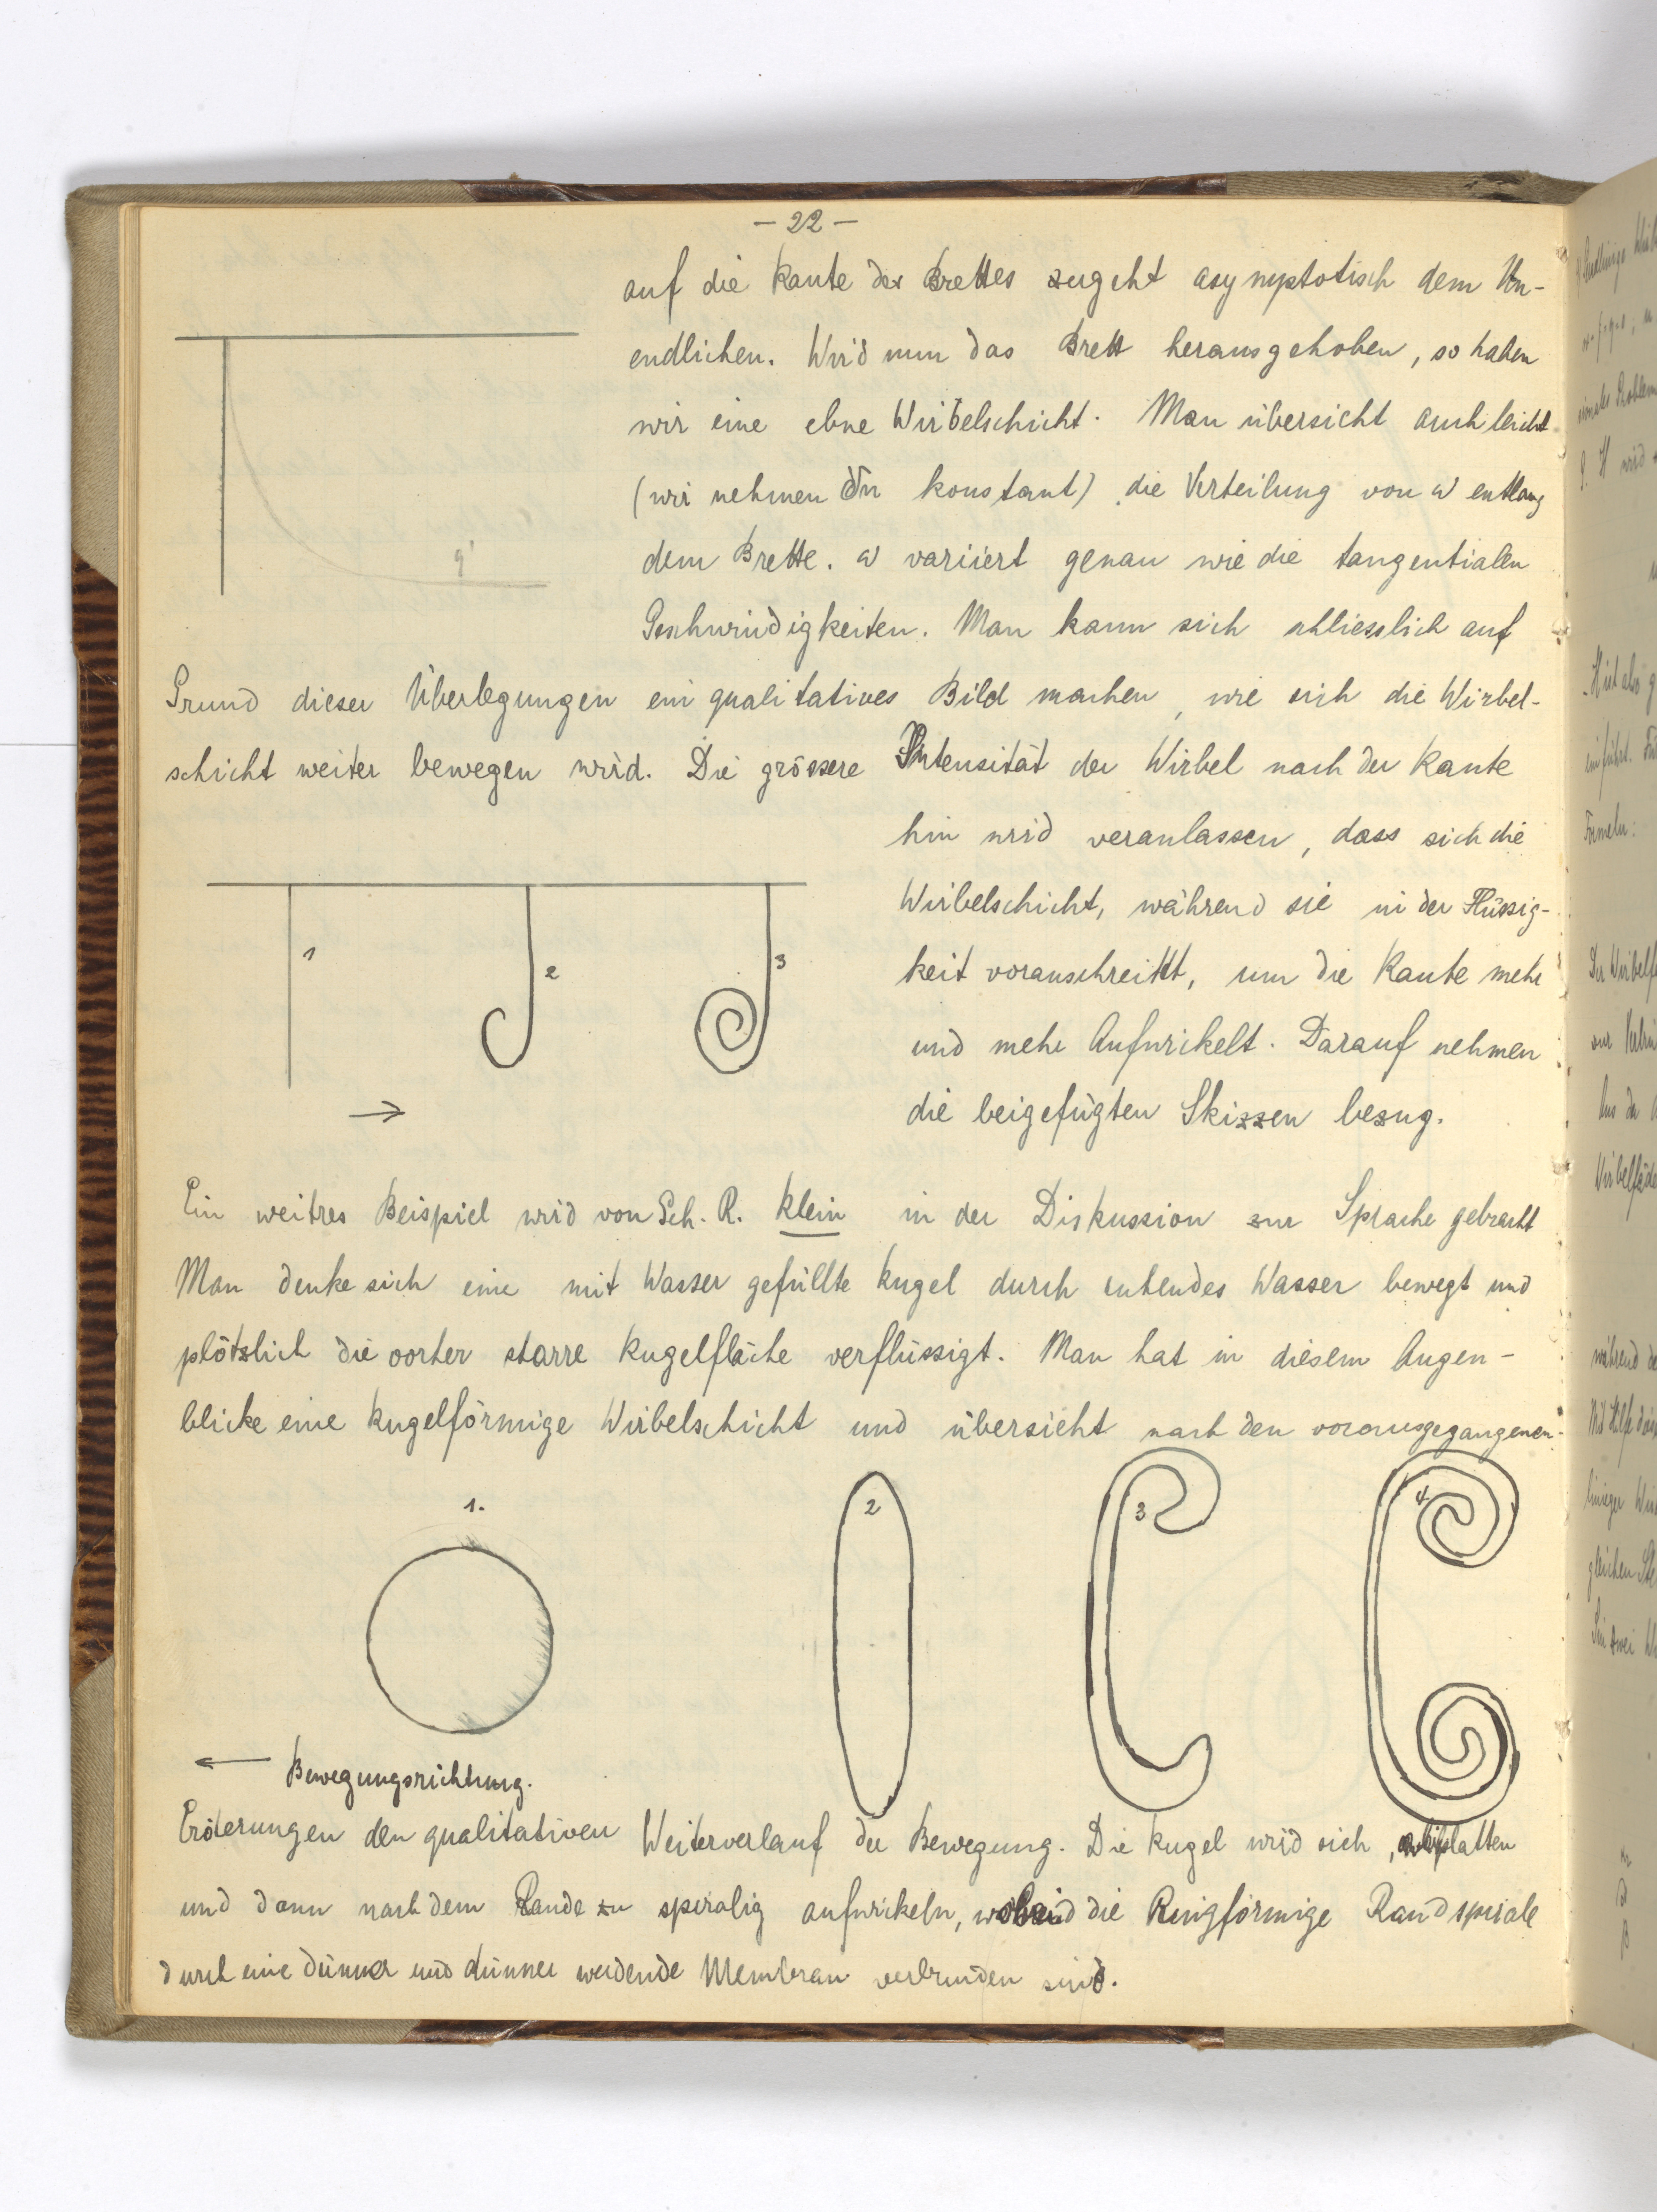 - 22 -
auf die Kante des Brettes zugeht asymptotisch dem Un-
endlichen. Wird nun das Brett herausgehoben, so haben
wir eine ebne Wirbelschicht. Man übersieht auch leicht
(wir nehmen dn konstant) die Verteilung von ω entlang
dem Brette. ω variiert genau wie die tangentialen
Geschwindigkeiten. Man kann sich schliesslich auf
q'
Grund dieser Überlegungen ein qualitatives Bild machen, wie sich die Wirbel-
schicht weiter bewegen wird. Die grössere Intensität der Wirbel nach der Kante
hin wird veranlassen, dass sich die
Wirbelschicht, während sie in der Flüssig-
keit voranschreitet, um die Kante mehr
und mehr Aufwickelt. Darauf nehmen
die beigefügten Skizzen bezug.
1 2 3
Ein weitres Beispiel wird von Geh. R. Klein in der Diskussion zur Sprache gebracht
Man denke sich eine mit Wasser gefüllte Kugel durch ruhendes Wasser bewegt und
plötzlich die vorher starre Kugelfläche verflüssigt. Man hat in diesem Augen-
blicke eine kugelförmige Wirbelschicht und übersieht nach den vorausgegangenen
1. 2 3 4
Bewegungsrichtung.
Eröterungen den qualitativen Weiterverlauf der Bewegung. Die Kugel wird sich,
und dann nach dem Rande zu spiralig aufwickeln, die Ringförmige Randspirale
durch eine dünner und dünner werdende Membran verbunden sind.